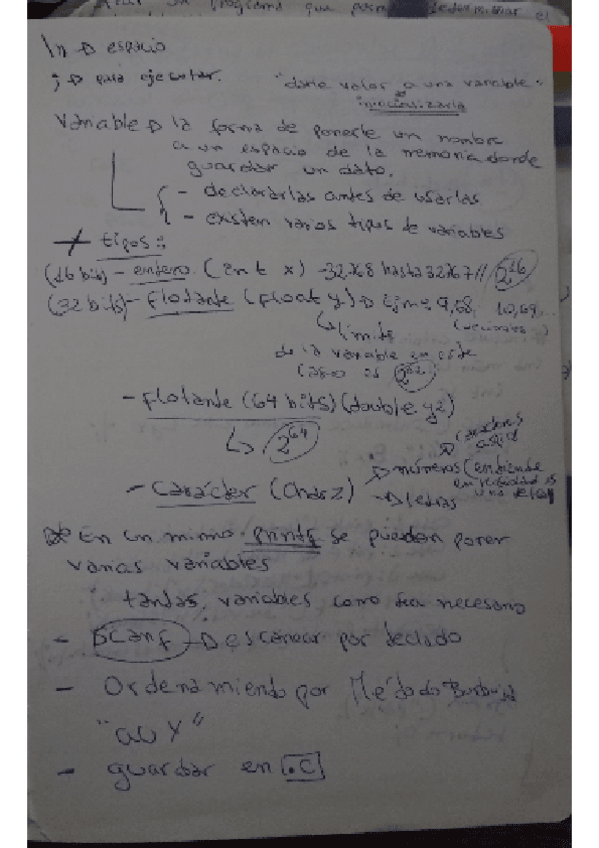 programa que
\n → espacio
; → para ejecutar. "darle valor a una variable"
inicializarla
Variable → la forma de ponerle un nombre
a un espacio de la memoria donde
guardar un dato.
- declararlas antes de usarlas
- existen varios tipos de variables
tipos:
(16 bits) - entero (int x) -32.768 hasta 32767 // 2^16
(32 bits) - Flotante (float y) → 9,68, 10,69...
↳ límite
de la variable en este
caso es 2^32
- Flotante (64 bits) (double y2)
↳ 2^64
- Carácter (char z)
→ números (entiende
→ letras
En un mismo printf se pueden poner
varias variables
tantas variables como sea necesario
- Scanf → Escanear por teclado
- Ordenamiento por Método Burbuja
- guardar en .C